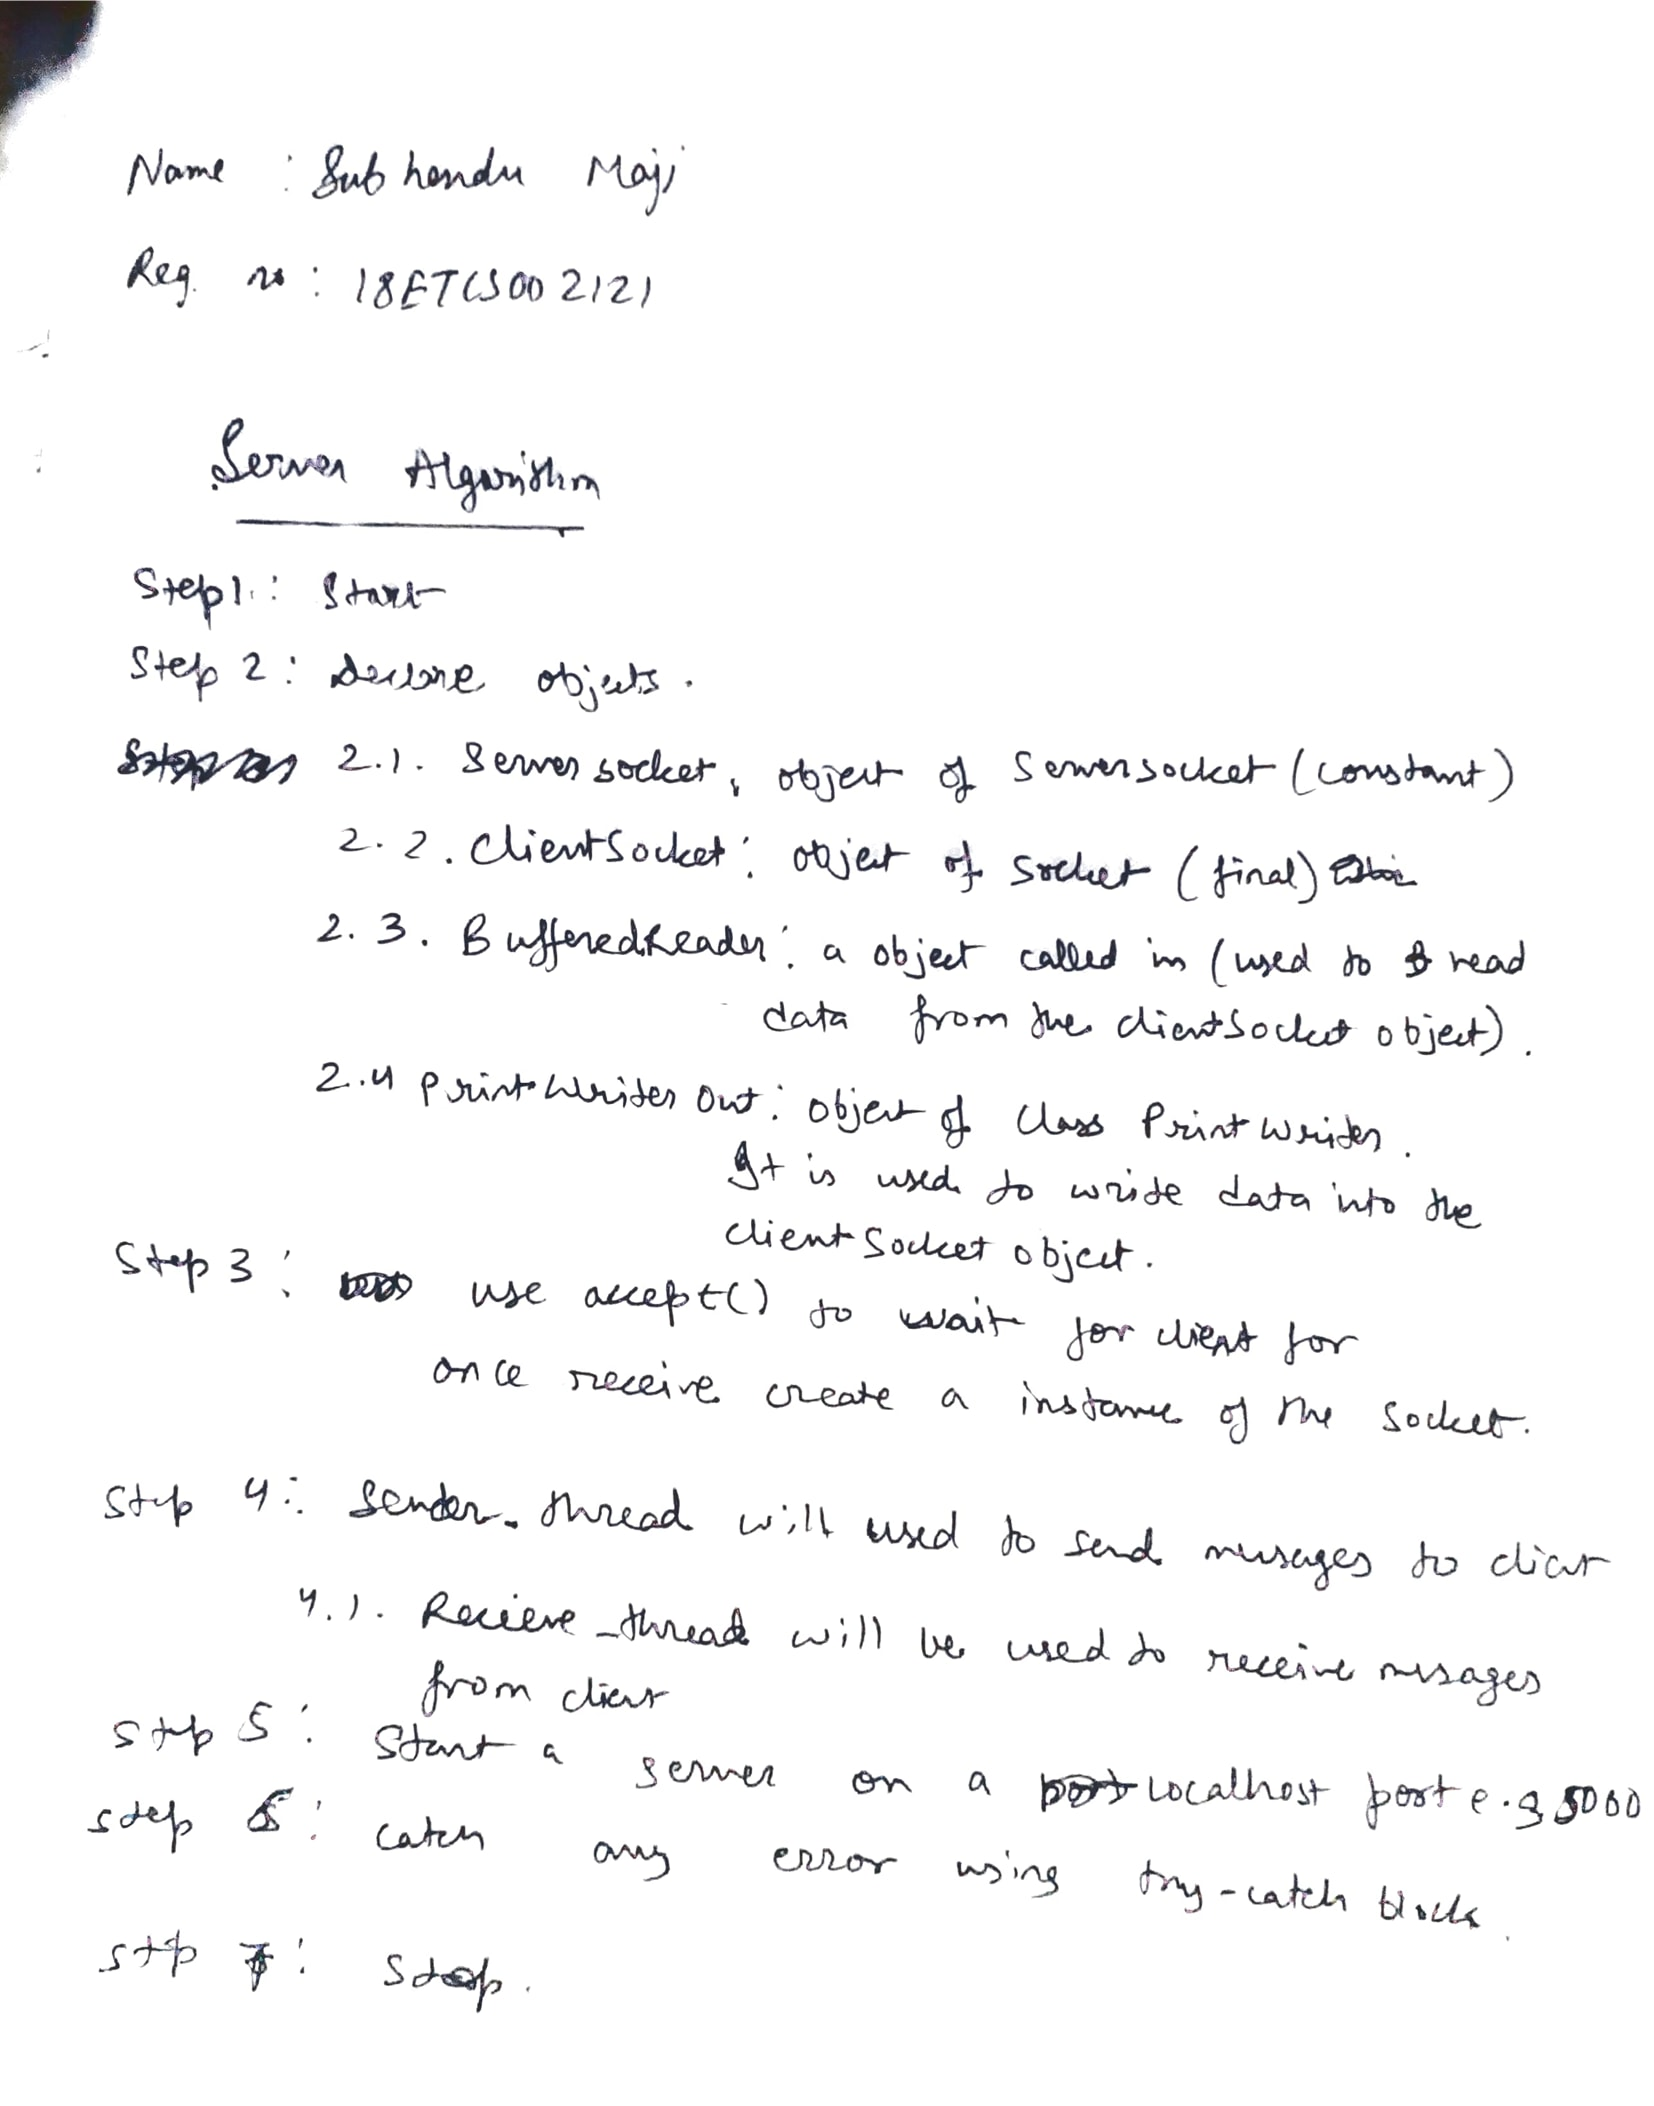 Name : Subhendu Maji
Reg. no : 18ETCS002121
Server Algorithm
Step 1 : Start
Step 2 : declare objects.
2.1. Server socket, object of Serversocket (constant)
2.2. ClientSocket : object of socket (final)
2.3. BufferedReader : a object called in (used to read
data from the clientSocket object).
2.4 PrintWriter out : object of class PrintWriter.
It is used to write data into the
clientSocket object.
Step 3 : use accept() to wait for client for
once receive create a instance of the socket.
Step 4 : Sender_thread will used to send messages to client
4.1. Recieve_thread will be used to receive messages
from client
Step 5 : Start a server on a localhost port e.g 5000
step 6 : catch any error using try-catch block.
step 7 : Stop.